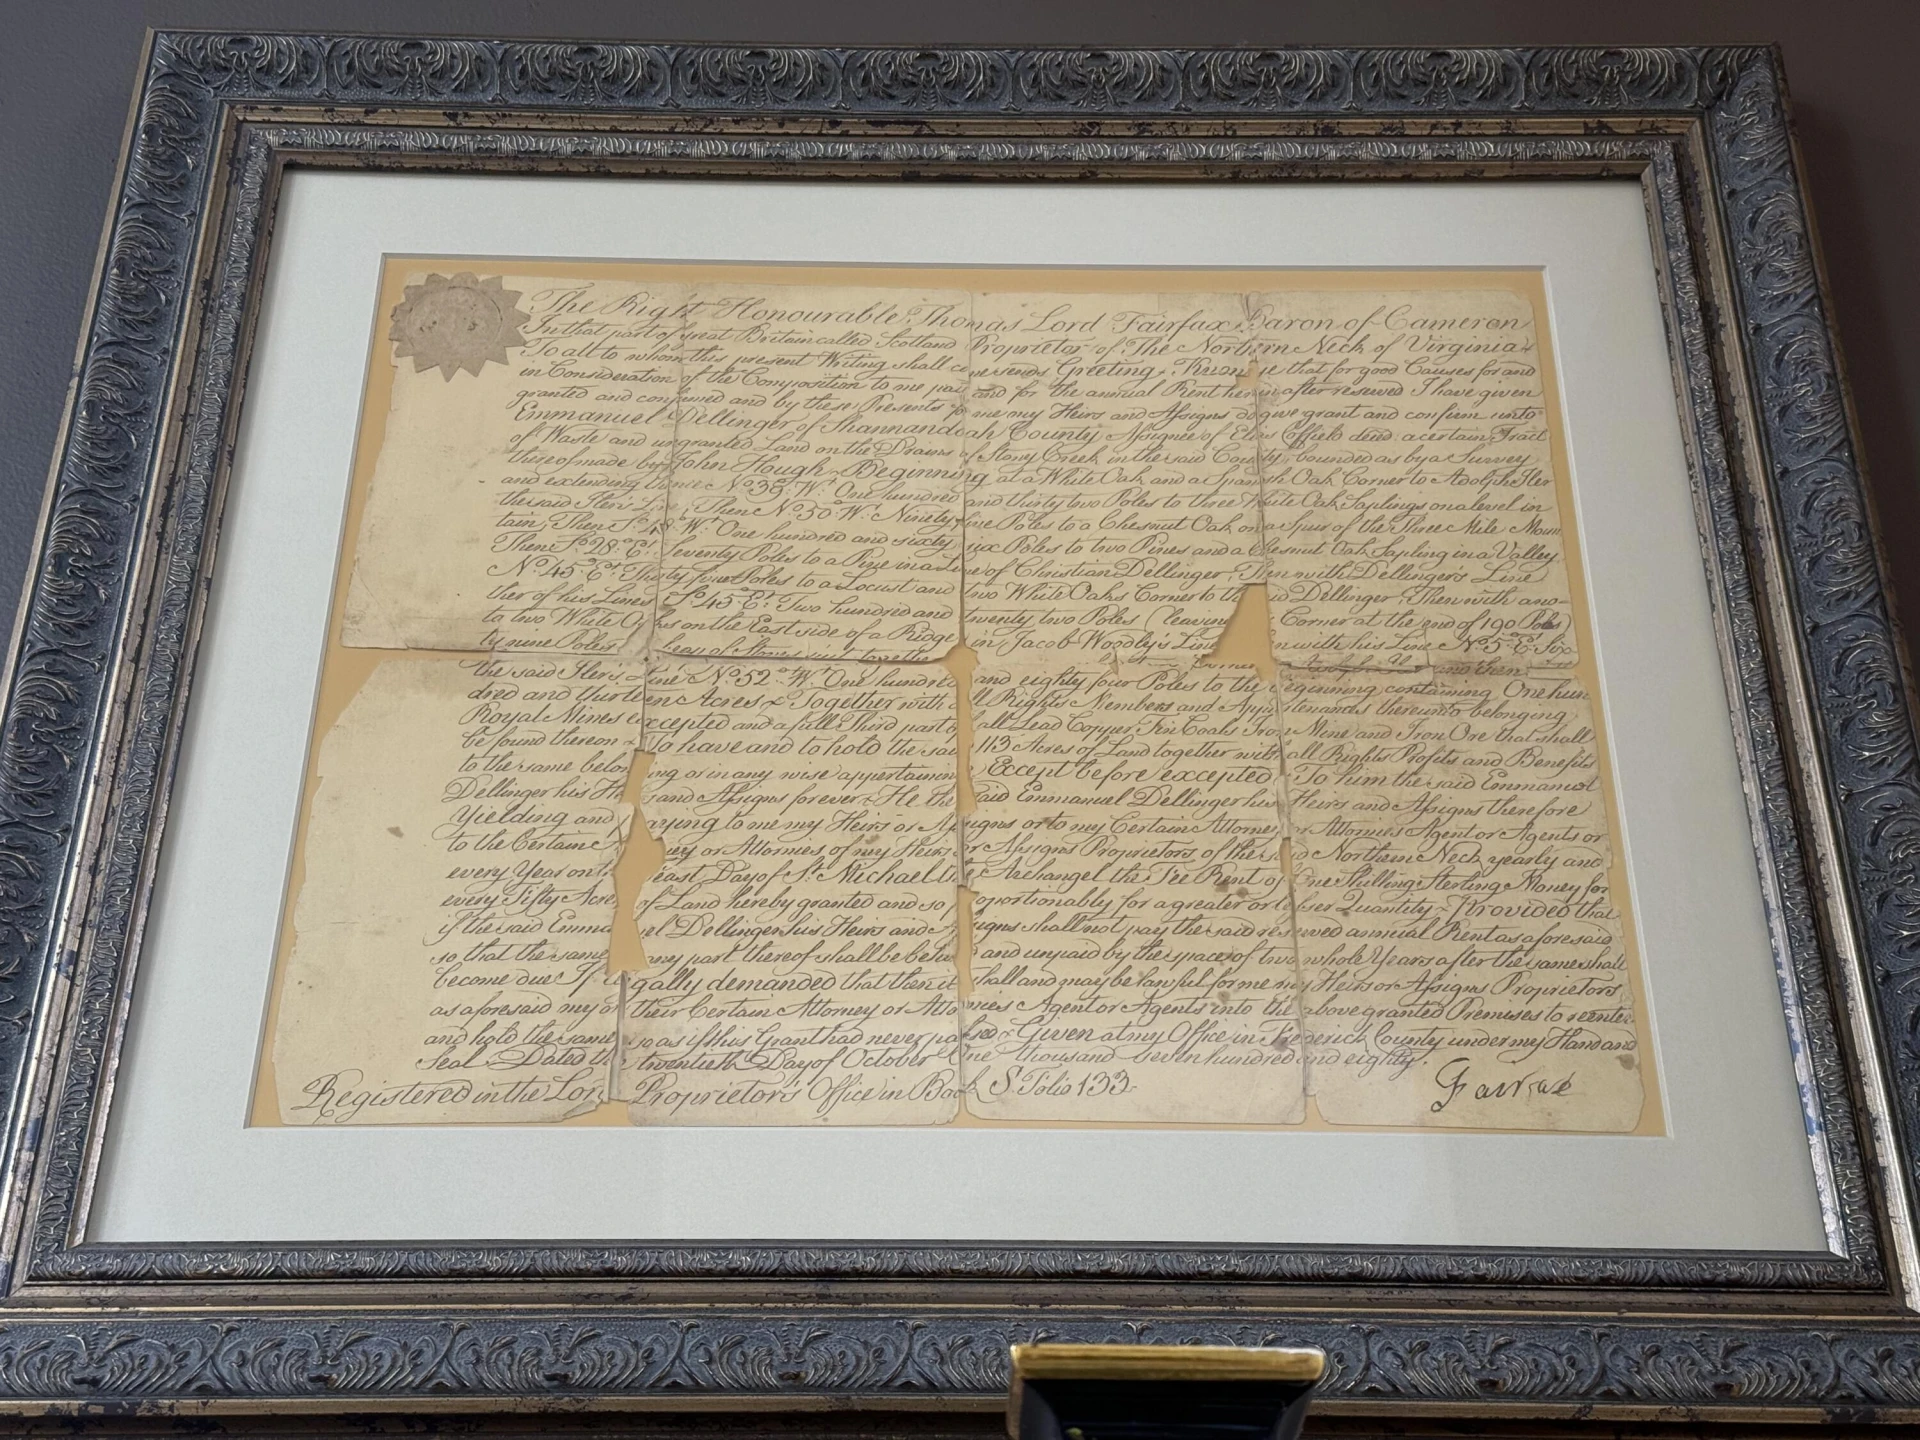 The Right Honourable Thomas Lord Fairfax Baron of Cameron
In that part of great Britain called Scotland Proprietor of The Northern Neck of Virginia
To all to whom this present Writing shall come sends Greeting Know ye that for good Causes for and
in Consideration of the Composition to me paid and for the annual Rent herein after reserved I have given
granted and confirmed and by these Presents for me my Heirs and Assigns do give grant and confirm unto
Emmanuel Dellinger of Shannandoah County Assignee of decd a certain Tract
of Waste and ungranted Land on the Drains of Stony Creek in the said County, bounded as by a Survey
thereof made by John Hough Beginning at a White Oak and a Spanish Oak Corner to Iler
and extending thence No 35 Wt One hundred and thirty two Poles to three White Oak Saplings on a level in
the said Iler's Line, Then No 50 Wt Ninety five Poles to a Chesnut Oak on a Spur of the Three Mile Moun
tain, Then So 48 Wt One hundred and sixty six Poles to two Pines and a Chesnut Oak Sapling in a Valley
Then So 28 Et Seventy Poles to a Pine in a Line of Christian Dellinger, Then with Dellinger's Line
No 45 Et Thirty five Poles to a Locust and two White Oaks Corner to the said Dellinger, Then with ano-
ther of his Lines So 45 Et Two hundred and twenty two Poles (leaving Corner at the end of 190 Poles)
to two White Oaks on the East side of a Ridge in Jacob Woodly's Line with his Line No 5 Et Six
ty nine Poles heap of Stones and then
the said Iler's Line No 52 Wt One hundred and eighty four Poles to the beginning containing One hun
dred and thirteen Acres Together with all Rights Members and Appurtenances thereunto belonging
Royal Mines excepted and a full Third part of all Lead Copper Tin Coals Iron Mine and Iron Ore that shall
be found thereon To have and to hold the said 113 Acres of Land together with all Rights Profits and Benefits
to the same belonging or in any wise appertaining Except before excepted To him the said Emmanuel
Dellinger his Heirs and Assigns forever He the said Emmanuel Dellinger his Heirs and Assigns therefore
Yielding and paying to me my Heirs or Assigns or to my Certain Attorney or Attornies Agent or Agents or
to the Certain Attorney or Attornies of my Heirs or Assigns Proprietors of the said Northern Neck yearly and
every Year on the feast Day of St Michael the Archangel the Fee Rent of One Shilling Sterling Money for
every Fifty Acres of Land hereby granted and so proportionably for a greater or lesser Quantity Provided that
if the said Emmanuel Dellinger his Heirs and Assigns shall not pay the said reserved annual Rent as aforesaid
so that the same any part thereof shall be behind and unpaid by the space of two whole Years after the same shall
become due If legally demanded that then it shall and may be lawful for me my Heirs or Assigns Proprietors
as aforesaid my or their Certain Attorney or Attornies Agent or Agents into the above granted Premises to reenter
and hold the same so as if this Grant had never passed Given at my Office in Frederick County under my Hand and
Seal Dated the twentieth Day of October One thousand seven hundred and eighty.
Registered in the Lord Proprietor's Office in Book S Folio 133
Fairfax